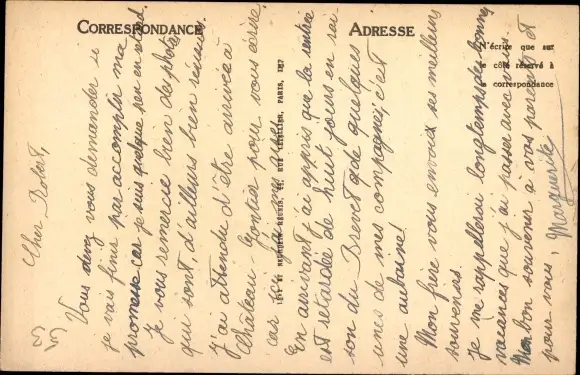 CORRESPONDANCE
ADRESSE
N'écrire que sur
le côté réservé à
la correspondance
RÉUNIS, RUE PARIS,
Cher Robert,
Vous devez vous demander si
je vais finir par accomplir ma
promesse car je suis quelque peu en retard.
Je vous remercie bien des photos
qui sont, d'ailleurs bien réussies.
J'ai attendu d'être arrivée à
Château Gontier pour vous écrire
car
En arrivant, j'ai appris que la rentrée
est retardée de huit jours en rai-
son du Brevet de quelques
unes de mes compagnes; c'est
une aubaine!
Mon frère vous envoie ses meilleurs
souvenirs.
Je me rappellerai longtemps des bonnes
vacances que j'ai passées avec vous
Mon bon souvenir à vos parents et
pour vous,
Marguerite